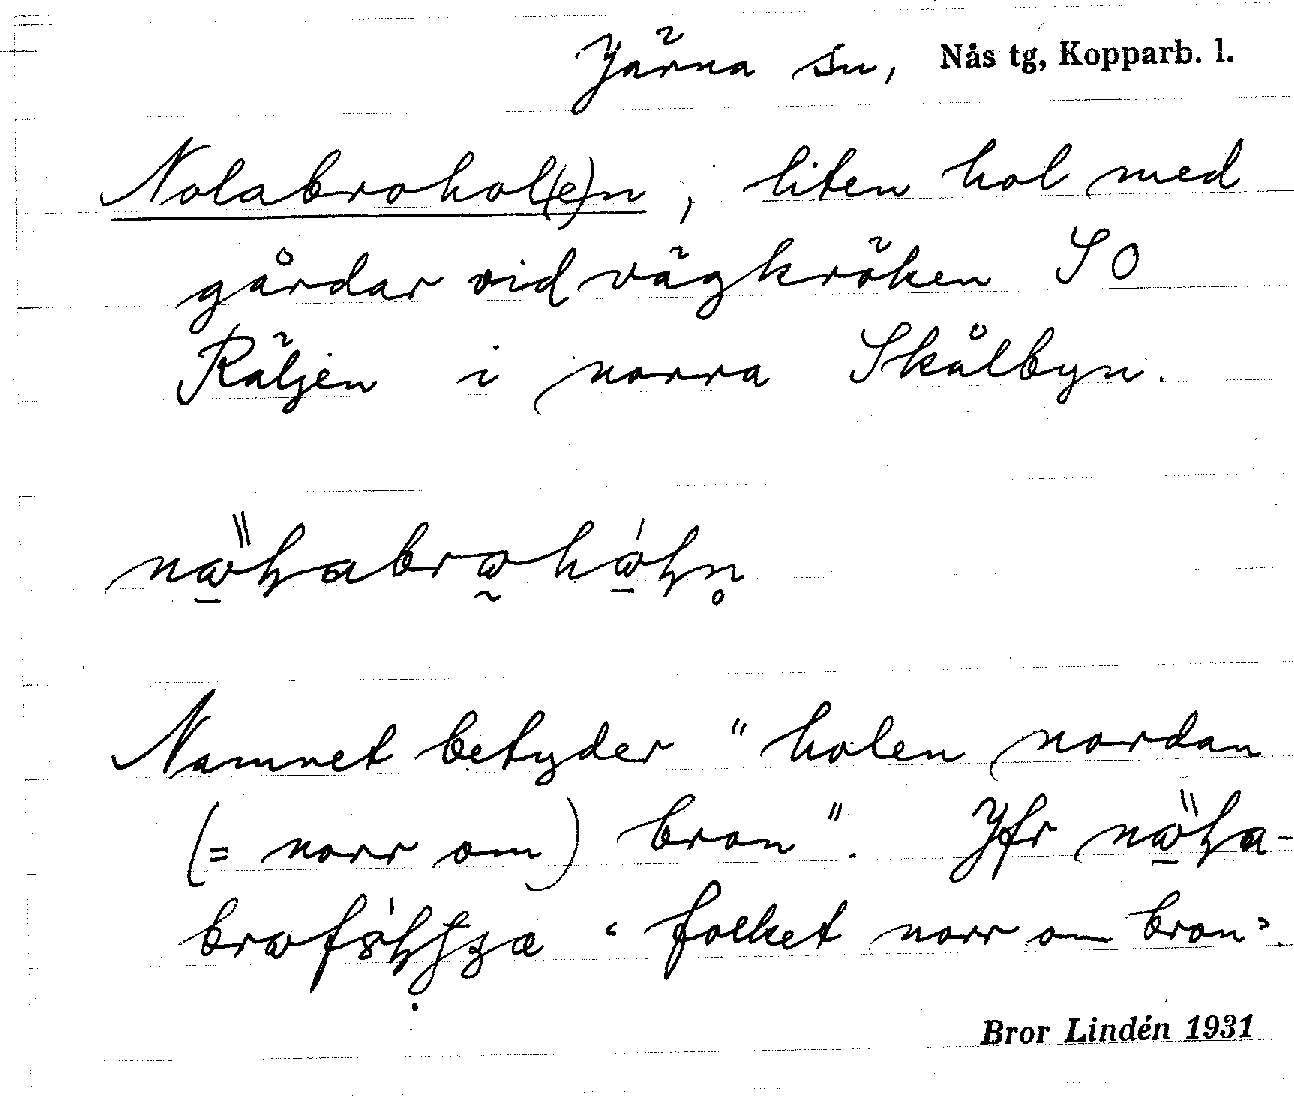 Järna sn, Nås tg, Kopparb. l.
Nolabrohol(e)n, liten hol med
gårdar vid vägkröken SO
Räljen i norra Skålbyn.
Namnet betyder "holen nordan
(= norr om) bron". Jfr
"folket norr om bron".
Bror Lindén 1931